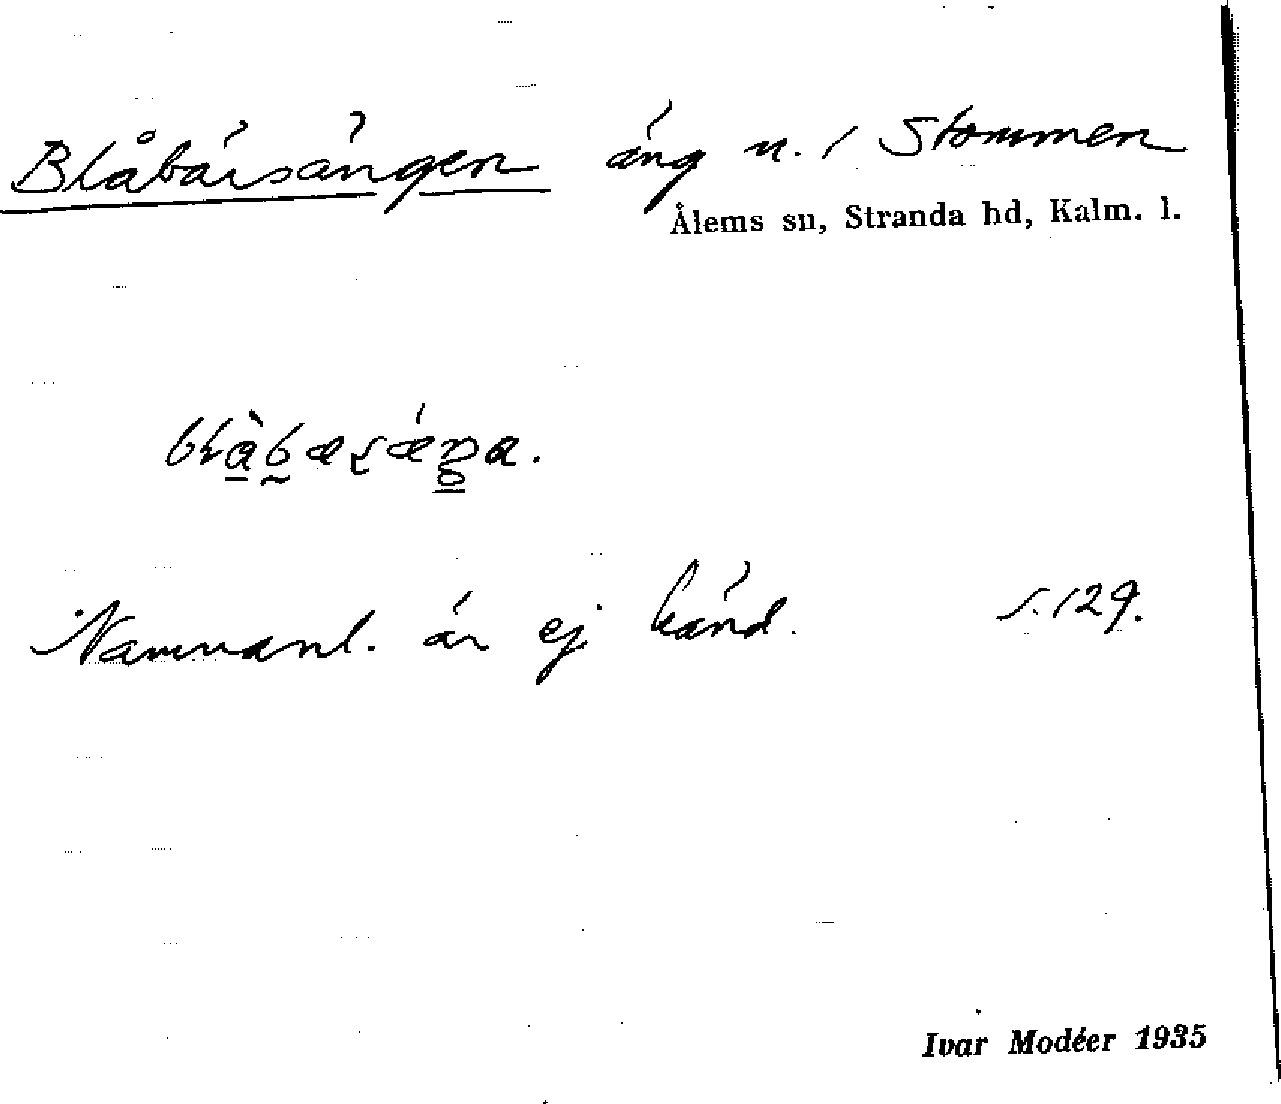 Blåbärsängen äng n. / Stommen
Ålems sn, Stranda hd, Kalm. l.
Namnanl. är ej känd. s. 129.
Ivar Modéer 1935